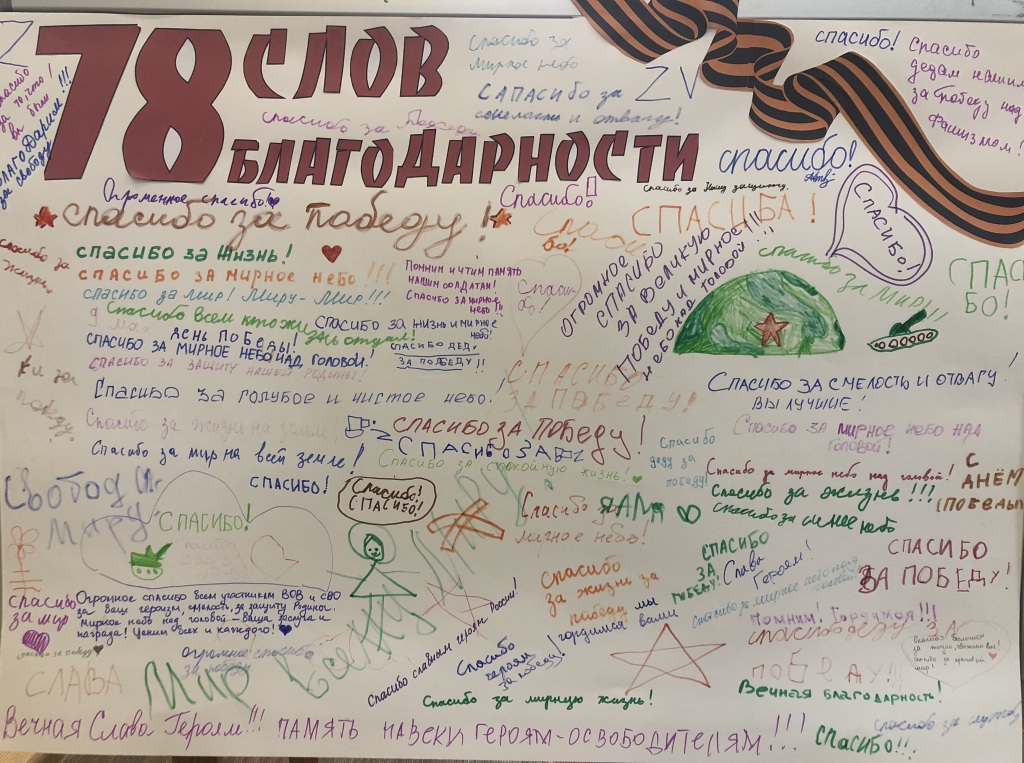 78 СЛОВ
БЛАГОДАРНОСТИ
Спасибо за
мирное небо
САПАСИБО за
смелость и отвагу!
ZV
спасибо за Победу
спасибо!
Спасибо
дедам нашим
за победу над
фашизмом!
спасибо
за то, что
вы были!
БЛАГОДАРИМ!!!
за свободу
Z
спасибо!
Спасибо за нашу защиту.
Огромное спасибо!
Спасибо!
спасибо за Победу!
Спаси
бо!
СПАСИБА!
СПАСИБО!
СПАС
БО!
спасибо за
жизнь!
спасибо за Жизнь!
СПАСИБО ЗА мирное небо!!!
спасибо за мир! Миру-Мир!!!
Помним и чтим память
нашим солдатам!
Спасибо за мирное
небо!!
Спаси-
бо!
ОГРОМНОЕ
СПАСИБО
ЗА ВЕЛИКУЮ
ПОБЕДУ И МИРНОЕ
НЕБО НАД ГОЛОВОЙ!!!
спасибо за Мир!
9 Мая
Спасибо всем кто жизнь отдал!
ДЕНЬ ПОБЕДЫ!
СПАСИБО ЗА МИРНОЕ НЕБО НАД ГОЛОВОЙ!
СПАСИБО ЗА ЗАЩИТУ НАШЕЙ РОДИНЫ!
СПАСИБО ЗА ЖИЗНЬ И МИРНОЕ
НЕБО!
СПАСИБО ДЕДУ
ЗА ПОБЕДУ!!
Спасибо за голубое и чистое небо!
СПАСИБО
ЗА ПОБЕДУ!
Спасибо за смелость и отвагу!
ВЫ ЛУЧШИЕ!
за
победу!
Спасибо за жизнь на земле!
СПАСИБО ЗА Победу!
СПАСИБО ЗА
Спасибо за мирное небо над
головой!
Спасибо за мир на всей земле!
Спасибо за спокойную жизнь!
спасибо
деду за
победу!
Спасибо за мирное небо над головой!
С
ДНЁМ
ПОБЕДЫ
СПАСИБО!
Спасибо!
СПАСИБО!
Спасибо за жизнь!!!
спасибо за синее небо
Свобода
Миру
СПАСИБО!
Спасибо
мирное небо!
Мир Всему Миру
СПАСИБО
ЗА
ПОБЕДУ!
Слава
Героям!
СПАСИБО
ЗА ПОБЕДУ!
Спасибо
за жизнь за
победу
мы
гордимся вами
Спасибо за мирное небо над
головой!
Спасибо
за мир
Огромное спасибо всем участникам ВОВ и СВО
за ваш героизм, смелость, за защиту Родины.
Мирное небо над головой – ваша заслуга и
награда! Ценим всех и каждого!
Спасибо за победу
огромное спасибо
за победу
Помним! Гордимся!!!
спасибо деду за
победу!!
Спасибо славным героям России!
Спасибо
героям
за победу!
СЛАВА
Спасибо за мирную жизнь!
Вечная благодарность!
Вечная Слава Героям!!! ПАМЯТЬ НАВЕКИ ГЕРОЯМ-ОСВОБОДИТЕЛЯМ!!!
СПАСИБО!!!
спасибо за